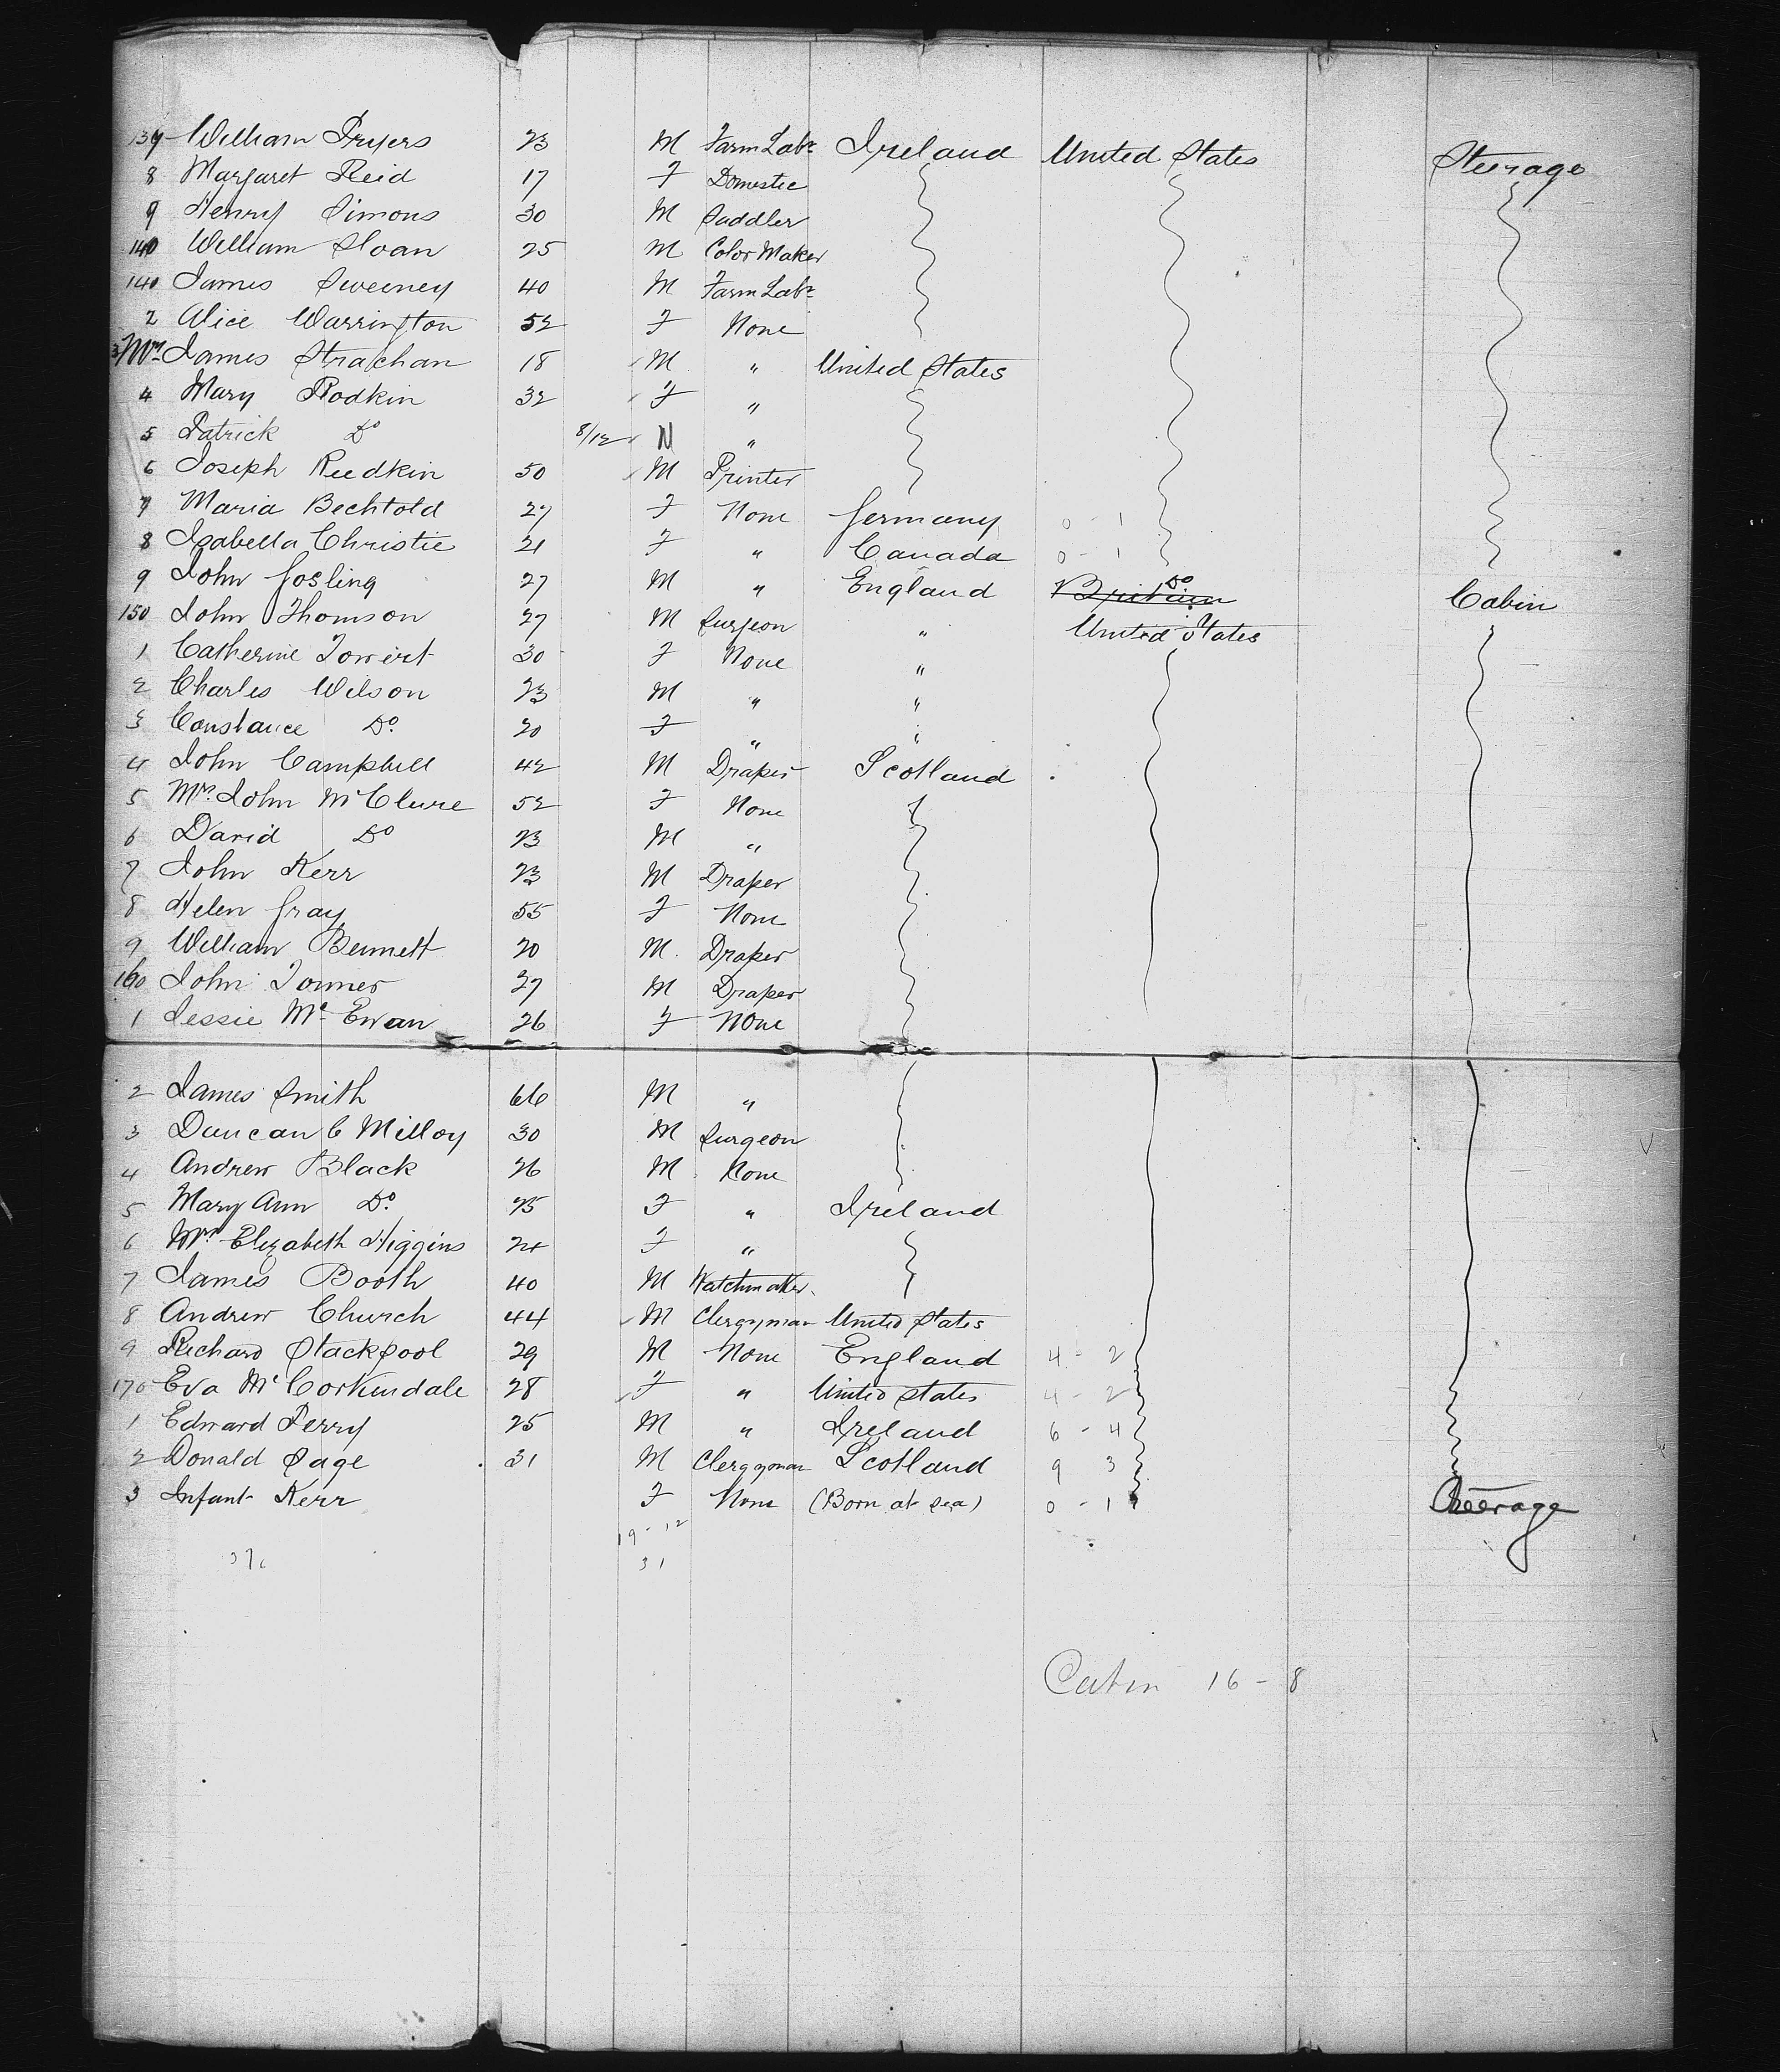 137 William Fryers 23 M Farm Labr Ireland United States Steerage
8 Margaret Reid 17 F Domestic
9 Henry Simons 30 M Saddler
140 William Sloan 25 M Color Maker
140 James Sweeney 40 M Farm Labr
2 Alice Warrington 52 F None
3 Mrs James Strachan 18 M " United States
4 Mary Rodkin 32 F "
5 Patrick Do 8/12 "
6 Joseph Rudkin 50 M Printer
7 Maria Bechtold 27 F None Germany 0 - 1
8 Isabella Christie 21 F " Canada 0 - 1
9 John Gosling 27 M " England Britain Do Cabin
150 John Thomson 27 M Surgeon " United States
1 Catherine 30 F None "
2 Charles Wilson 23 M " "
3 Constance Do 20 F " "
4 John Campbell 42 M Draper Scotland
5 Mrs John McClure 52 F None
6 David Do 23 M "
7 John Kerr 23 M Draper
8 Helen Gray 55 F None
9 William Bennett 20 M. Draper
160 John 27 M Draper
1 Jessie McEwan 26 F None
2 James Smith 66 M "
3 Duncan C Milloy 30 M Surgeon
4 Andrew Black 26 M None
5 Mary Ann Do 25 F " Ireland
6 Mrs Elizabeth Higgins 24 F "
7 James Booth 40 M Watchmaker
8 Andrew Church 44 M Clergyman United States
9 Richard Stackpool 29 M None England 4 - 2
170 Eva McCorkindale 28 F " United States 4 - 2
1 Edward Perry 25 M " Ireland 6 - 4
2 Donald Sage 31 M Clergyman Scotland 9 3
3 Infant Kerr F None (Born at sea) 0 - 1 Steerage
19 - 12
31
Cabin 16 - 8